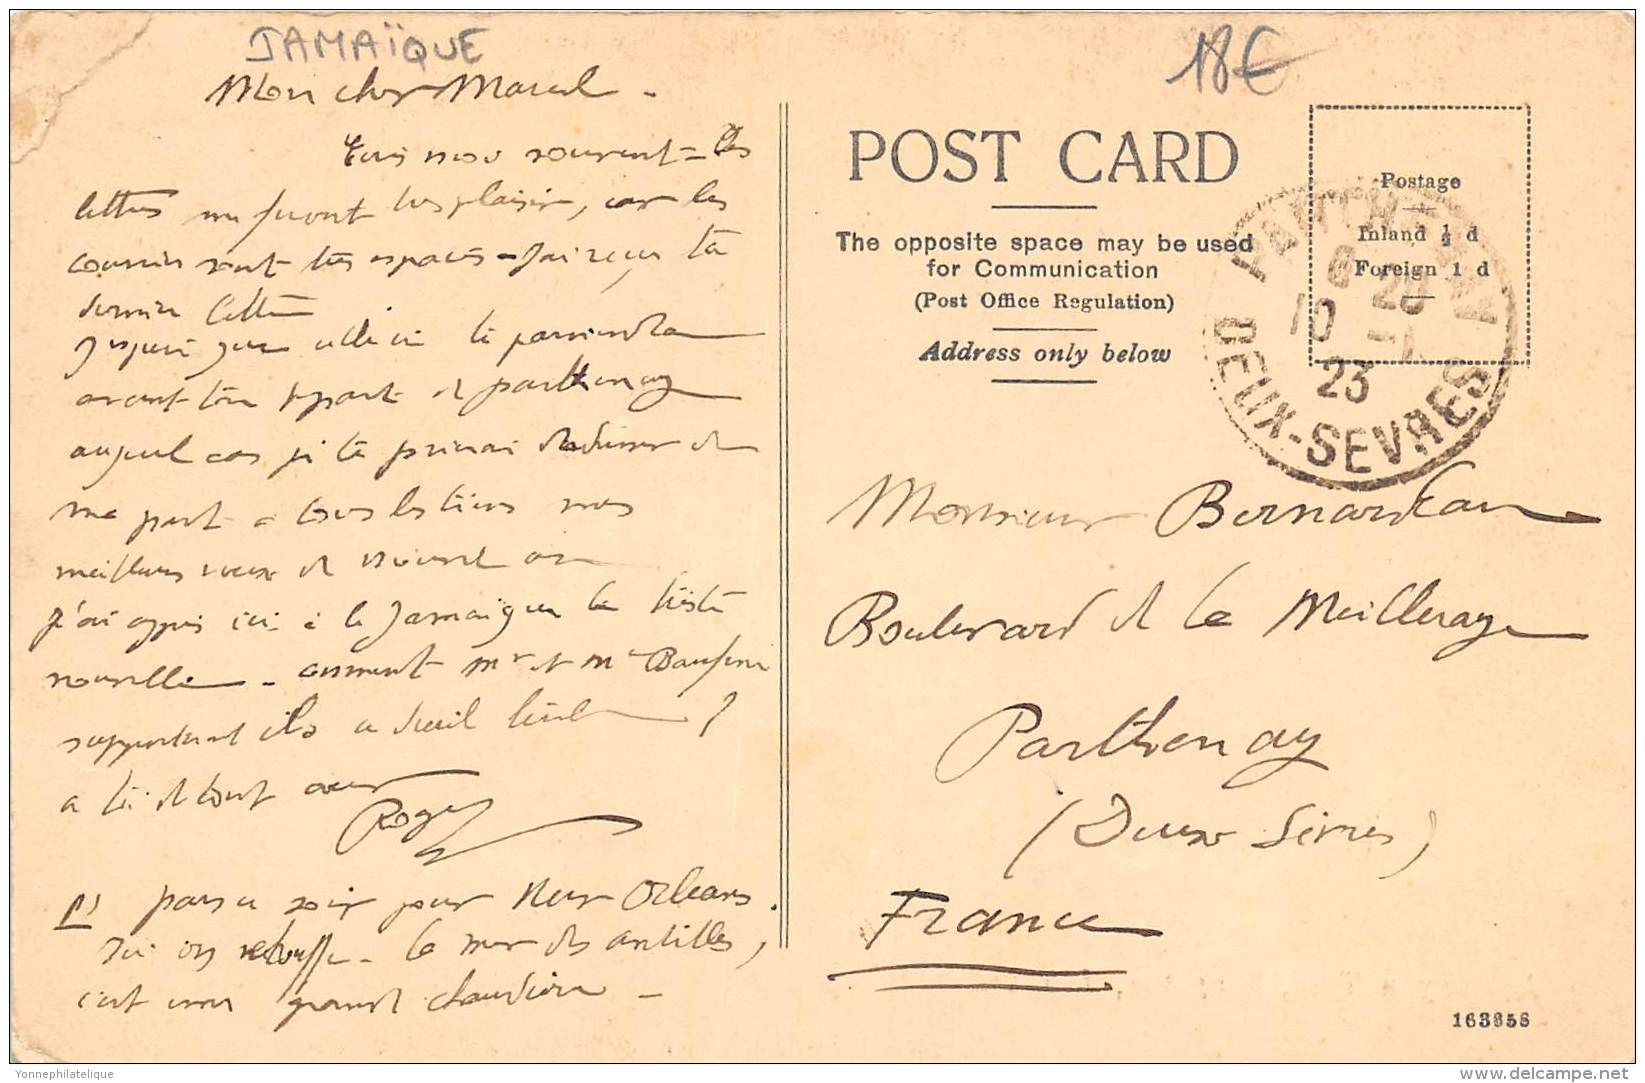 JAMAÏQUE
18€
Mon cher Marcel -
souvent - tes
lettres me feront très plaisir, car les
courriers sont très espacés - J'ai reçu ta
dernière lettre
J'espère que celle ci te parviendra
avant ton départ de parthenay
auquel cas je te prierai d'adresser de
ma part à tous les tiens nos
meilleurs voeux de nouvel an
j'ai appris ici à la Jamaïque la triste
nouvelle - comment Mr et Me
supportent ils ce deuil ?
à toi de tout coeur
Roger
PS pars ce soir pour New Orléans.
Ici on - la mer des antilles,
c'est une grande chaudière -
POST CARD
The opposite space may be used
for Communication
(Post Office Regulation)
Address only below
Postage
Inland ½ d
Foreign 1 d
PARTHENAY
10 -1
23
DEUX-SEVRES
Monsieur Bernardeau
Boulevard de la Meilleraye
Parthenay
(Deux Sèvres)
France
163958
Yonnephilatelique
delcampe.net